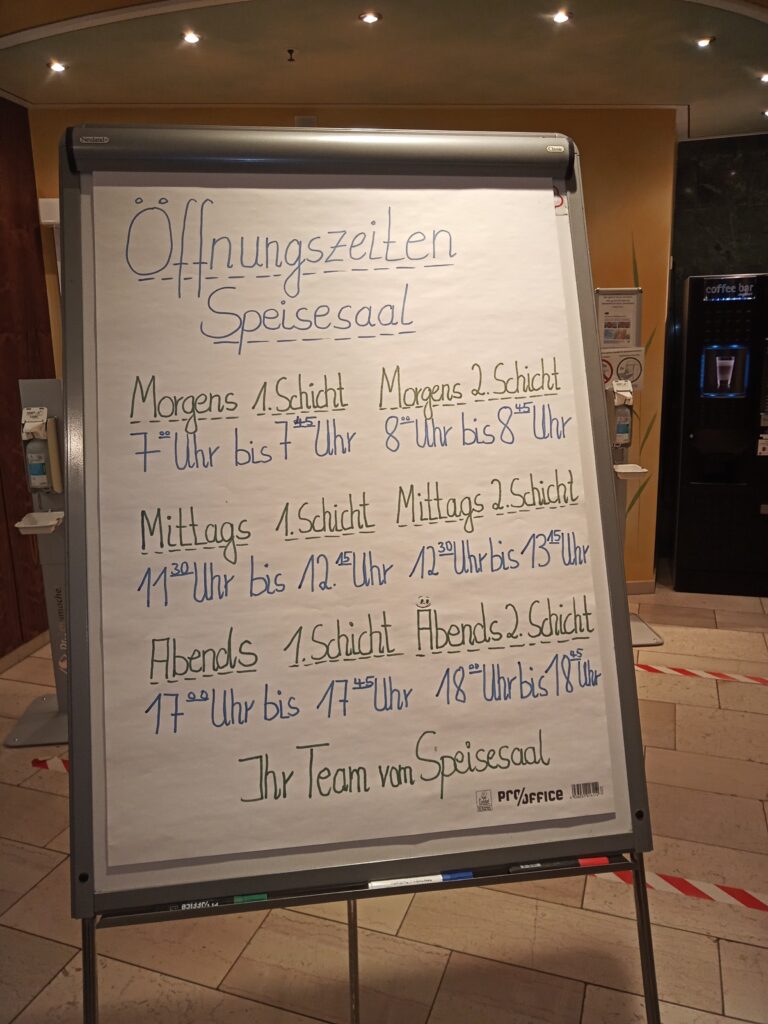 Öffnungszeiten
Speisesaal
Morgens 1. Schicht
7⁰⁰ Uhr bis 7⁴⁵ Uhr
Morgens 2. Schicht
8⁰⁰ Uhr bis 8⁴⁵ Uhr
Mittags 1. Schicht
11³⁰ Uhr bis 12.¹⁵ Uhr
Mittags 2. Schicht
12³⁰ Uhr bis 13¹⁵ Uhr
Abends 1. Schicht
17⁰⁰ Uhr bis 17⁴⁵ Uhr
Abends 2. Schicht
18⁰⁰ Uhr bis 18⁴⁵ Uhr
Ihr Team vom Speisesaal
PRO/OFFICE
coffee bar